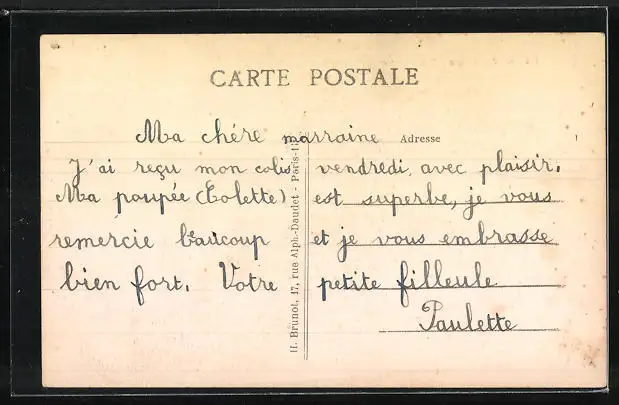 CARTE POSTALE
Ma chére marraine
Adresse
J'ai reçu mon colis vendredi, avec plaisir.
Ma poupée (Colette) est superbe, je vous
remercie beaucoup et je vous embrasse
bien fort. Votre petite filleule
Paulette
H. Brunot, 17, rue Alph.-Daudet - Paris-